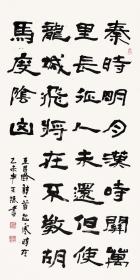 秦時明月漢時關萬
里長征人未還但使
龍城飛將在不教胡
馬度陰山
王昌齡詩 時在
乙未年 書